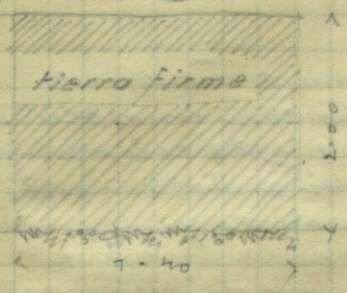 tierra firme
2.00
1.40